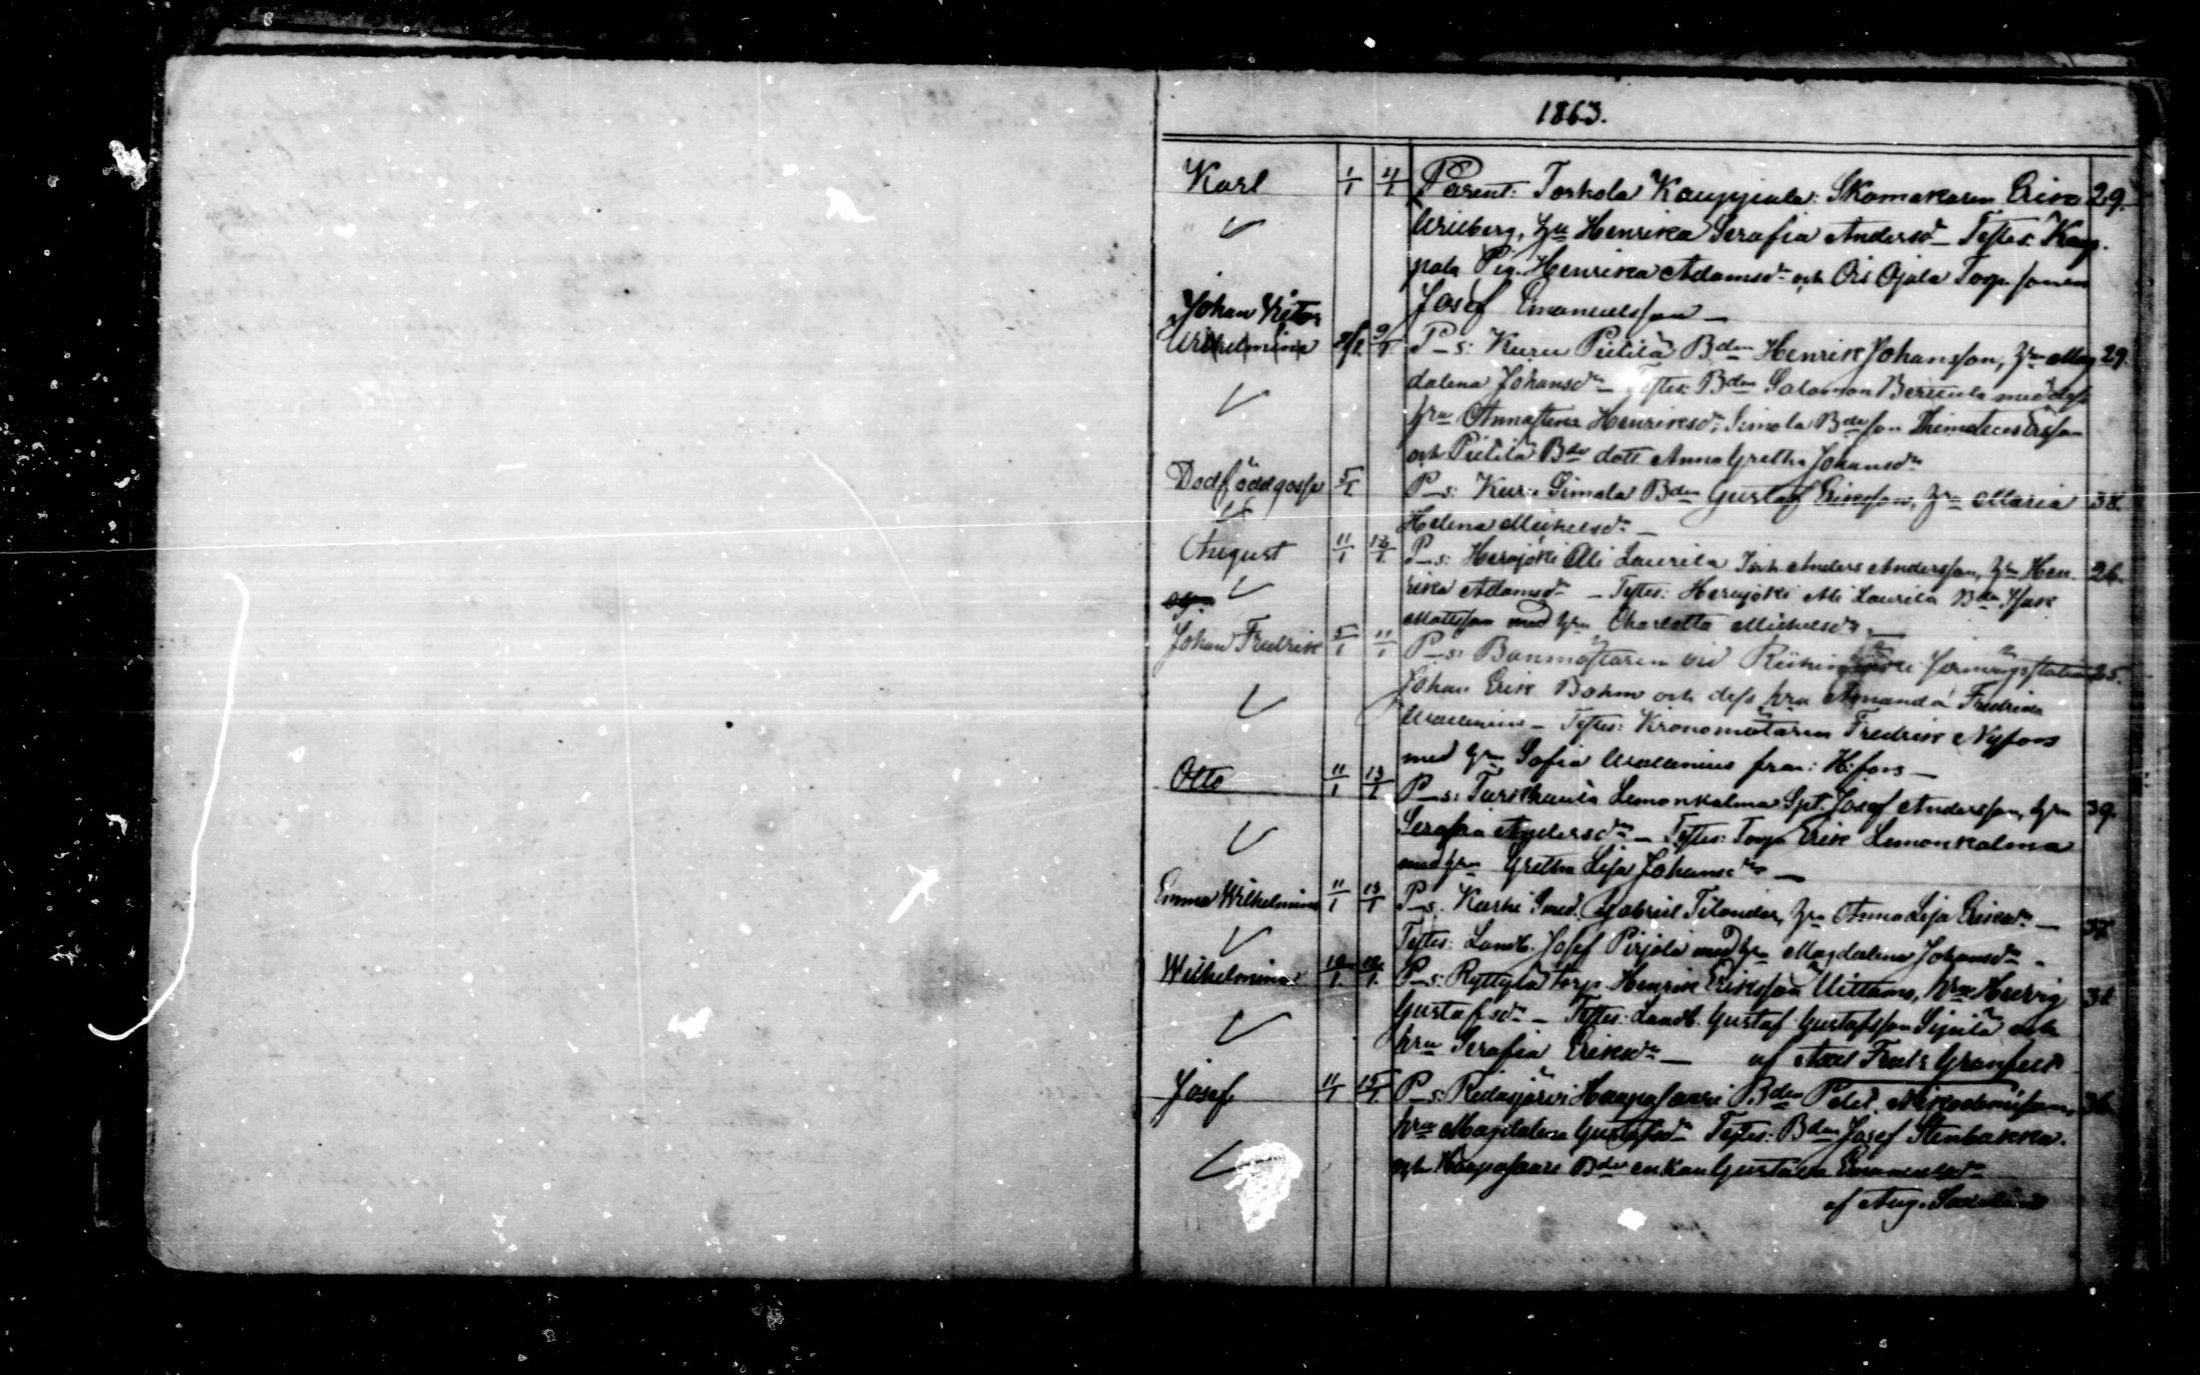 1863.
Karl 1/1 4/1 Parent: Torhola Kauppiala: Skomakaren Erik 29.
Wriberg, hu Henrika Serafia Andersdr Testes: Kaup-
pala Pig. Henrika Adamsdr och Ois Ojala Torp. sonen
Josef Emanuelsson
Johan Victor
Wilhelmina 9/1 P_s: Kuru Pietilä Bden Henrik Johansson, hu Mag 29.
dalena Johansdr Testes: Bden Salomon med dess
hru Annastina Henriksdr, Simola Bdeson
och Pietilä Bde dott Anna Gretha Johansdr
Dödfödd gosse 5/1 P_s: Kuru Simola Bden Gustaf Eriksson, hu Maria 38.
Helena Mickelsdr
August 11/1 P_s: Herajoki Ali Laurila Inh. Anders Andersson, hu Hen- 26.
rika Adamsdr _ Testes: Herajoki Ali Laurila Bden Isak
Mattsson med hru Charlotta Mickelsdr
Johan Fredrik 5/1 11/1 P_s: Banmästaren vid 25.
Johan Erik Bohm och dess hru Amanda Fredrika
Wallenius _ Testes: Fredrik Nyfors
med hru Sofia Wallenius från: H:fors _
Otto 11/1 13/1 P_s: Lemonkalma Spt. Josef Andersson, hu 39.
Serafia Andersdr _ Testes: Torp. Erik Lemonkalma
med hru Gretha Lisa Johansdr _
Emma Wilhelmina 11/1 13/1 P_s. Karhi Smed. Gabriel Tilander, hu Anna Lisa Eriksdr _
Testes: Landb. Josef Pirjola med hu Magdalena Johansdr _
Wilhelmina P_s: Ryttylä Torp. Henrik Eriksson Uittamo, hru Hedvig
Gustafsdr _ Testes: Landb. Gustaf Gustafsson och
hru Serafia Eriksdr _ af Axel Fredr Granfelt
Josef 11/1 15/1 P_s: Ridasjärvi Haapasaari Bden Petter 36.
hru Magdalena Gustafsdr Testes: Bden Josef Stenbakka.
och Haapasaari Bde enkan Gustava Emanuelsdr
af Aug.